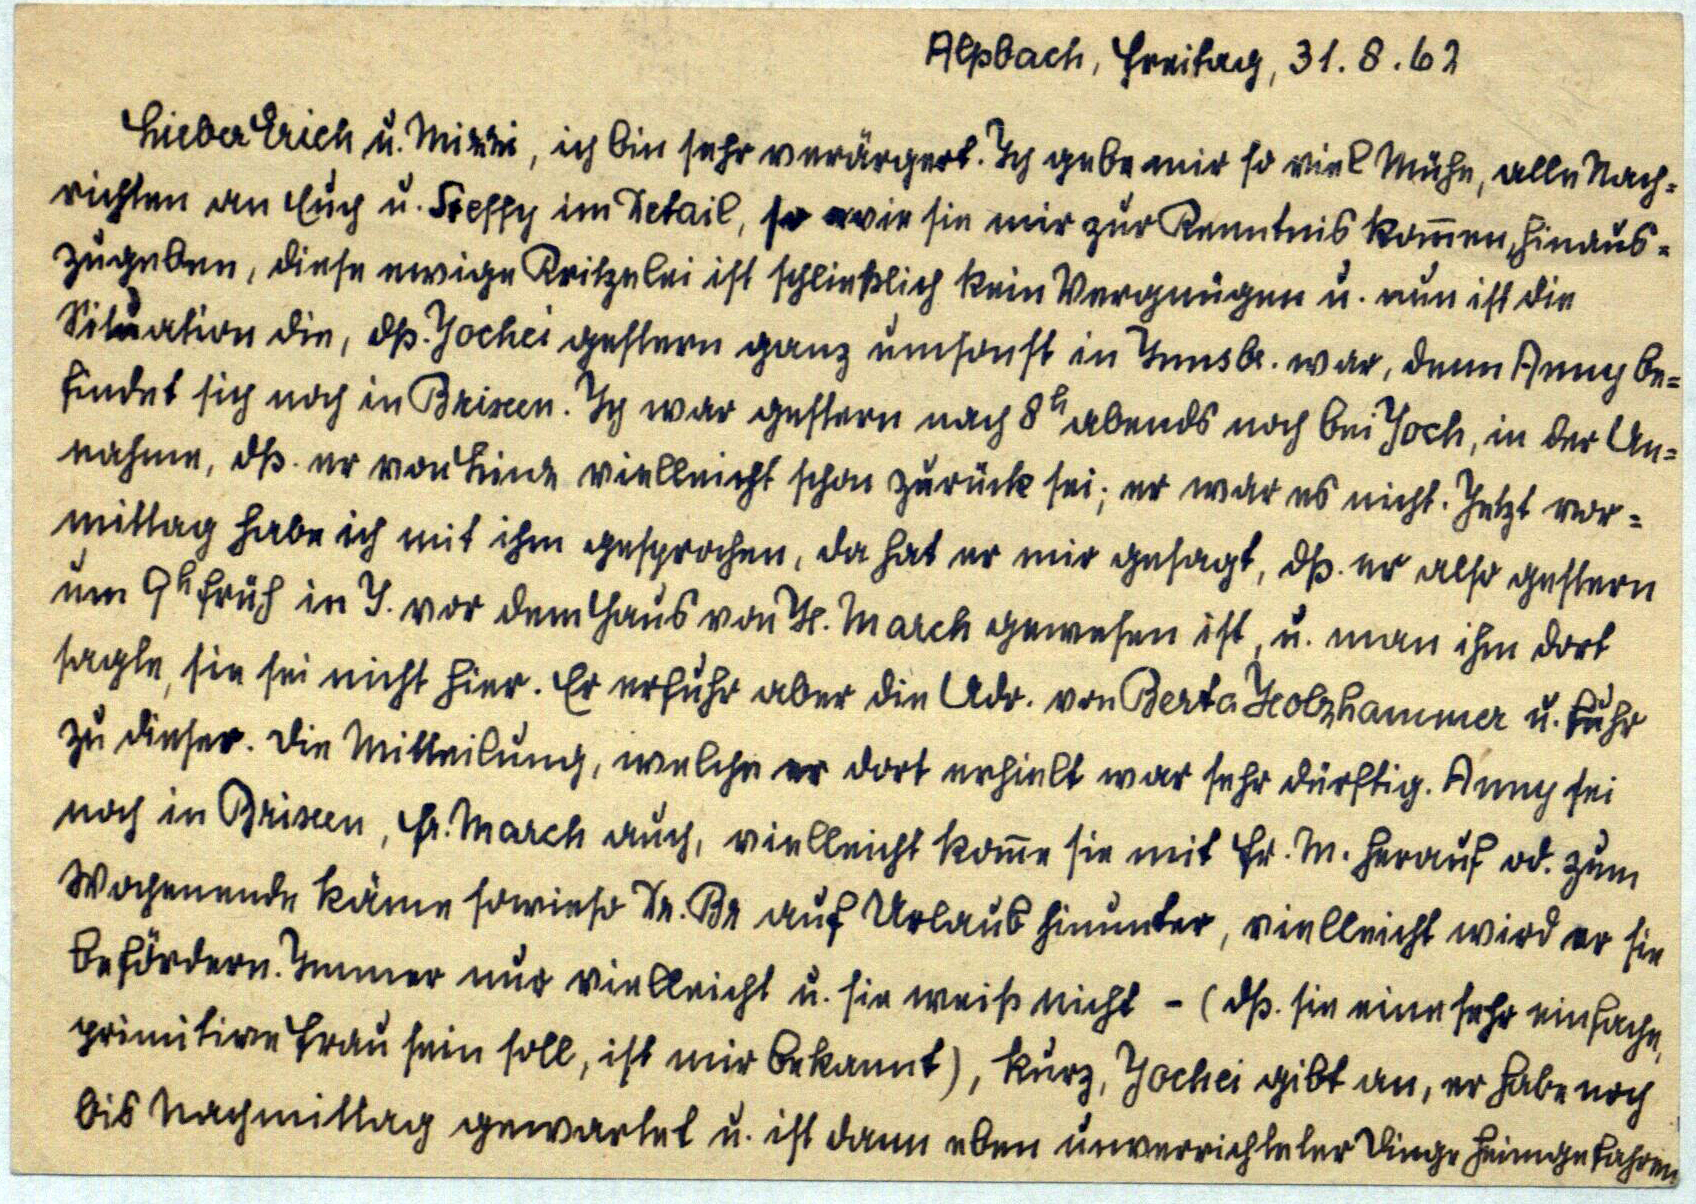 Alpbach, Freitag, 31.8.62
Lieber Erich u. Mimi, ich bin sehr verärgert. Ich gebe mir so viel Mühe, alle Nach=
richten an Euch u. Steffy im Detail, so wie sie mir zur Kenntnis kom̄en, hinaus=
zugeben, diese ewige Kritzelei ist schließlich kein Vergnügen u. nun ist die
Situation die, dß. Jochei gestern ganz umsonst in Innsbr. war, denn Anny be=
findet sich noch in Brixen. Ich war gestern nach 8h abends noch bei Joch, in der An=
nahme, dß. er von seine vielleicht schon zurück sei; er war es nicht. Jetzt vor=
mittag habe ich mit ihm gesprochen, da hat er mir gesagt, dß. er also gestern
um 9h früh in I. vor dem Haus von Fr. March gewesen ist, u. man ihm dort
sagte, sie sei nicht hier. Er erfuhr aber die Adr. von Berta Holzhammer u. fuhr
zu dieser. Die Mitteilung, welche er dort erhielt war sehr dürftig. Anny sei
noch in Brixen, Fr. March auch, vielleicht kom̄e sie mit Fr. M. herauf od. zum
Wochenende käme sowieso Dr. Br auf Urlaub hinunter, vielleicht wird er sie
befördern. Immer nur vielleicht u. sie weiß nicht - (dß. sie eine sehr einfache,
primitive Frau sein soll, ist mir bekannt), kurz, Jochei gibt an, er habe noch
bis Nachmittag gewartet u. ist dann eben unverrichteter Dinge heimgefahren